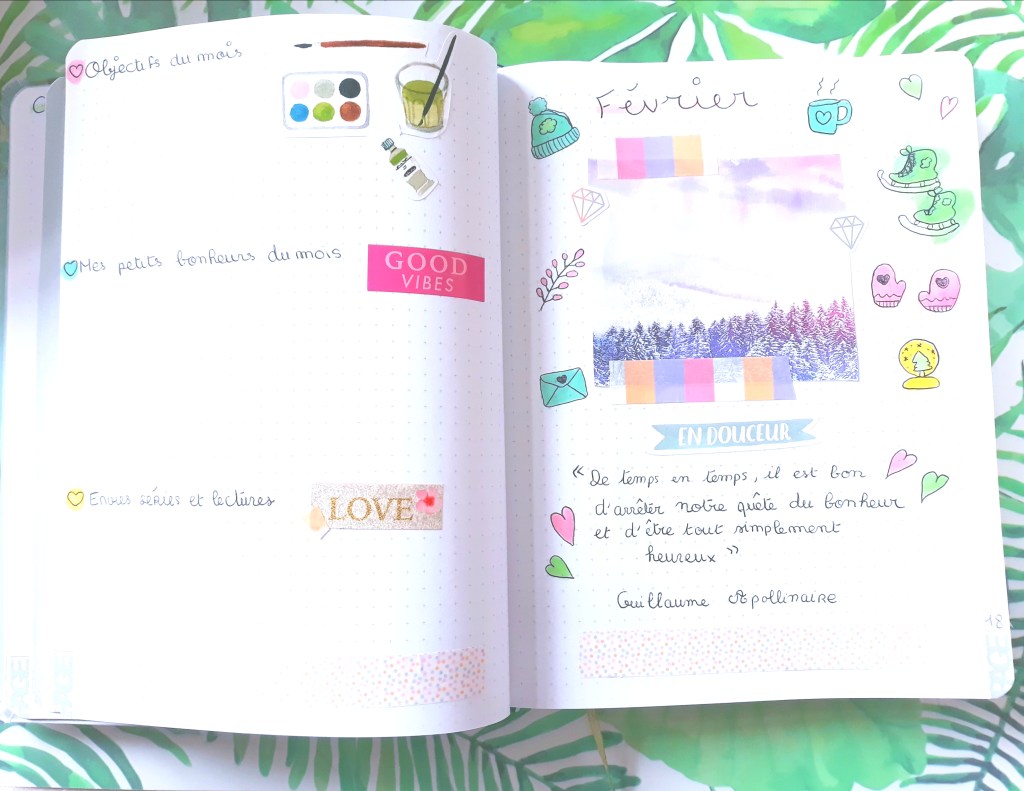 Objectifs du mois
Mes petits bonheurs du mois
GOOD
VIBES
Envies séries et lectures
LOVE
Février
EN DOUCEUR
« De temps en temps, il est bon
d'arrêter notre quête du bonheur
et d'être tout simplement
heureux »
Guillaume Apollinaire
18